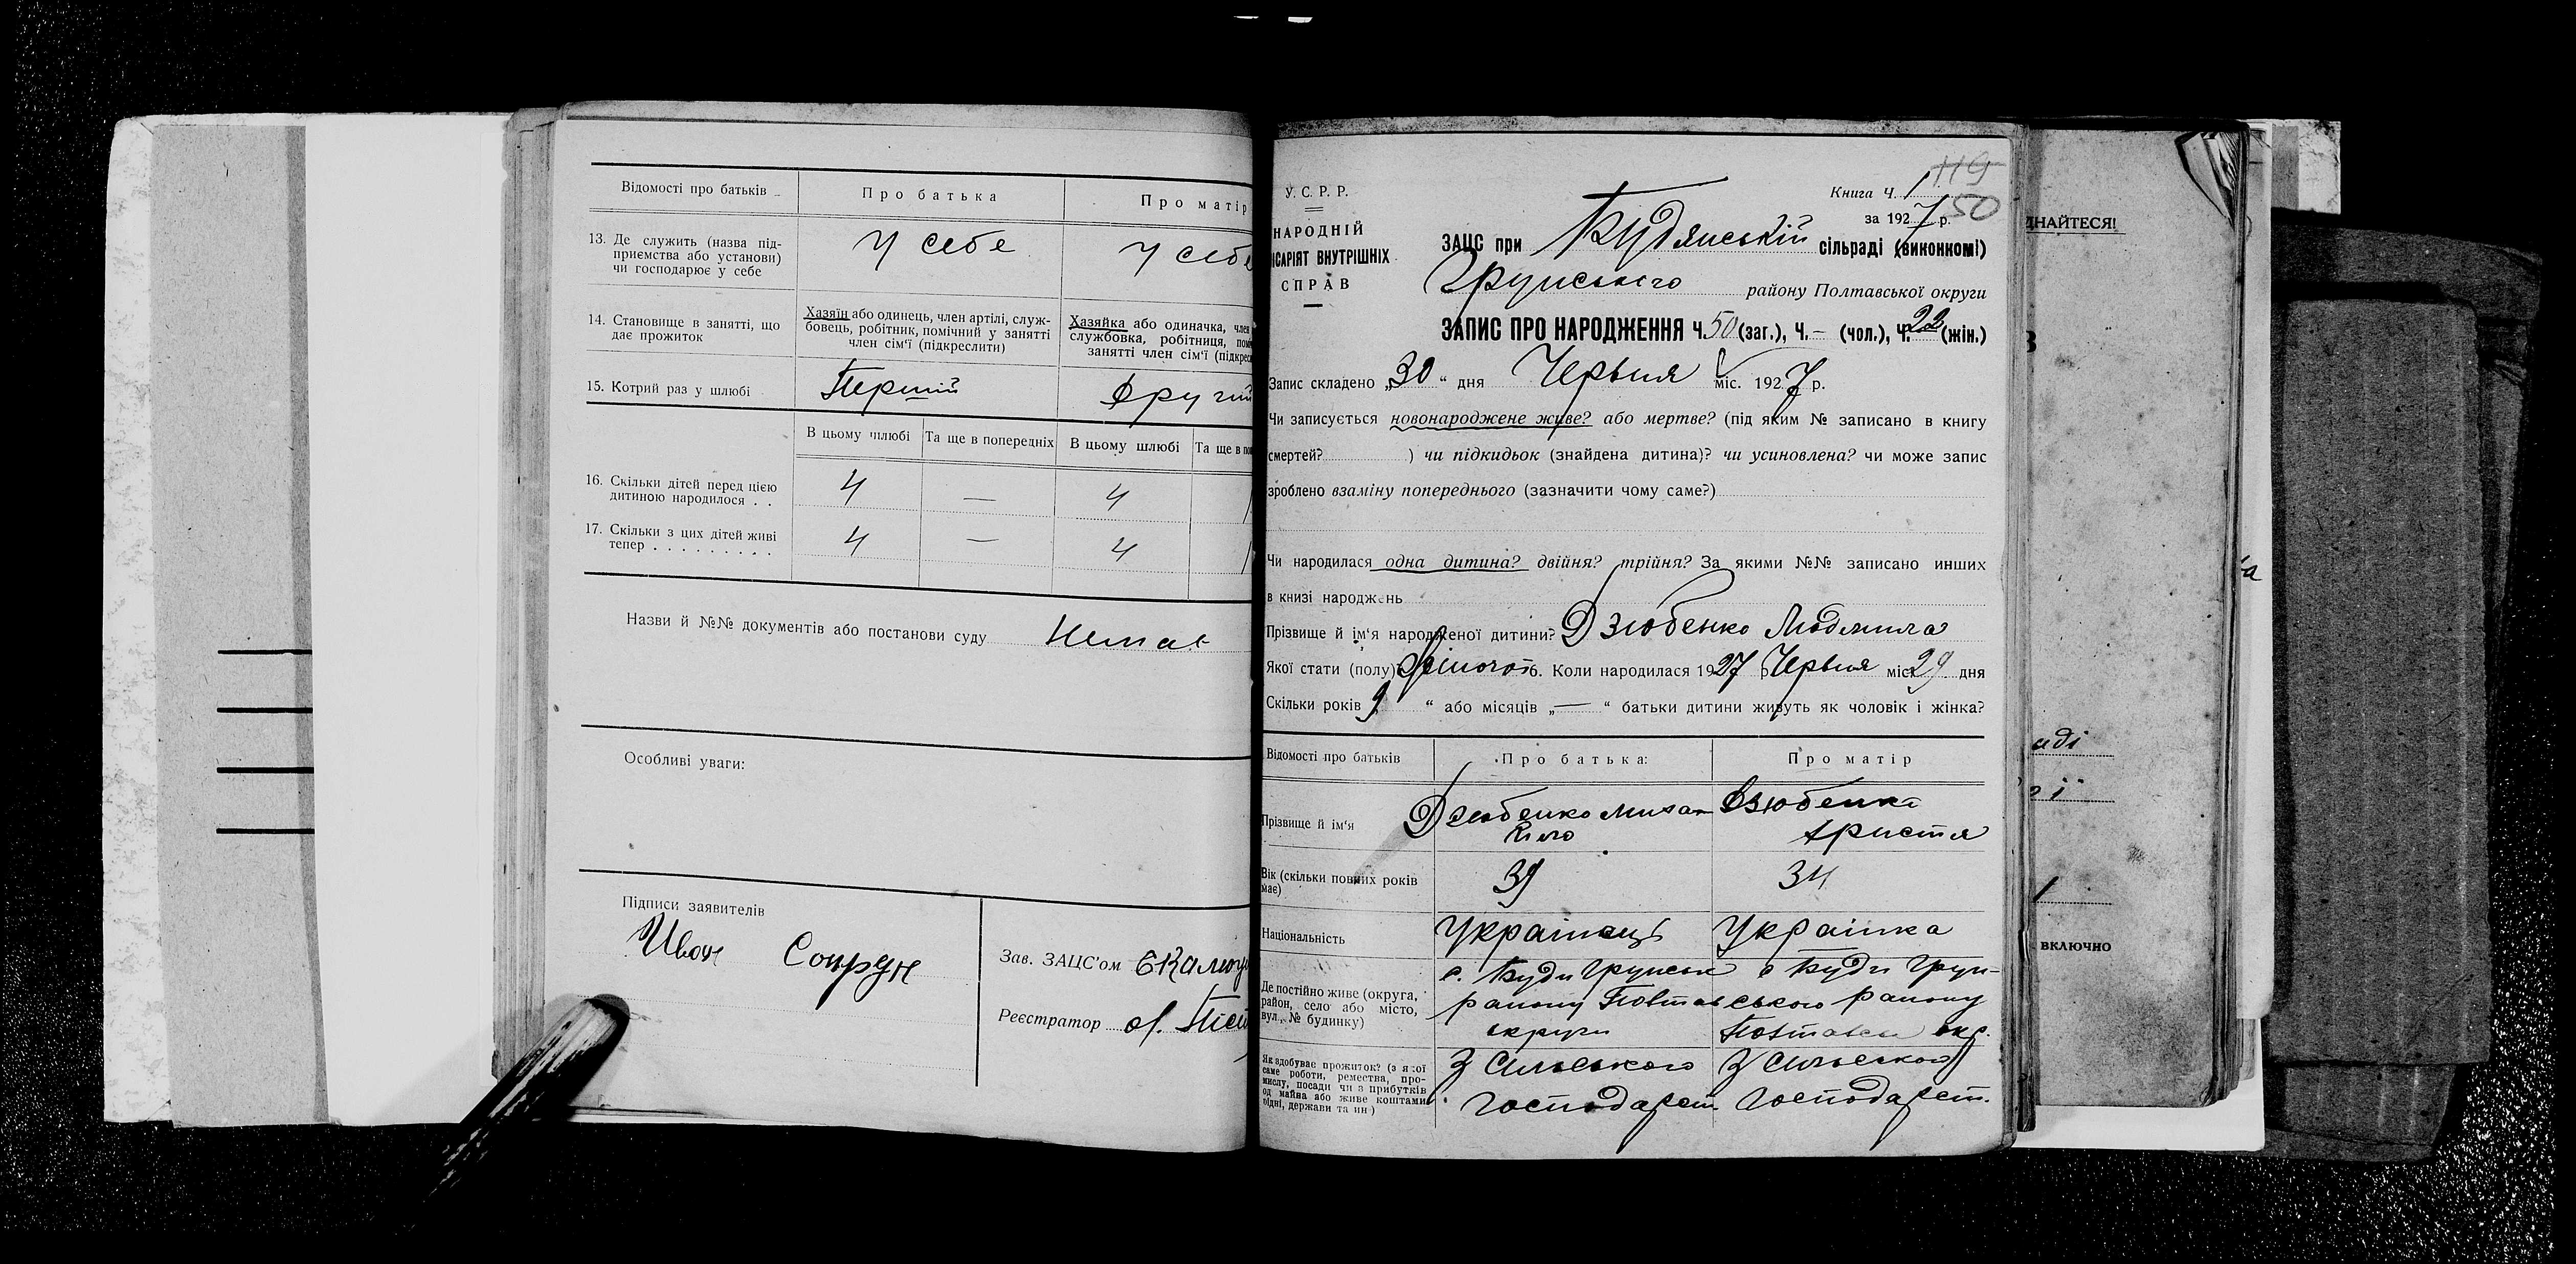 Відомості про батьків
Про батька
Про матір
13. Де служить (назва під-
приємства або установи)
чи господарює у себе
У себе
У себе
14. Становище в занятті, що
дає прожиток
Хазяїн або одинець, член артілі, служ-
бовець, робітник, помічний у занятті
член сім'ї (підкреслити)
Хазяйка або одиначка, член
службовка, робітниця, пом
занятті член сім'ї (підкрес
15. Котрий раз у шлюбі
Перший
Другий
В цьому шлюбі
Та ще в попередніх
В цьому шлюбі
Та ще в поп
16. Скільки дітей перед цією
дитиною народилося . .
4
—
4
1
17. Скільки з цих дітей живі
тепер . . . . . . . . .
4
—
4
1
Назви й №№ документів або постанови суду Немає
Особливі уваги:
Підписи заявителів
Иван Сопрун
Зав. ЗАЦС'ом
Реєстратор
У. С. Р. Р.
НАРОДНІЙ
ІСАРІЯТ ВНУТРІШНІХ
СПРАВ
119
Книга Ч. 1
50
за 1927 р.
ЗАЦС при Кудянській сільраді (виконкомі)
Грунського району Полтавської округи
ЗАПИС ПРО НАРОДЖЕННЯ Ч. 50 (заг.), Ч. — (чол.), Ч. 23 (жін.)
Запис складено „30“ дня Червня міс. 1927 р.
Чи записується новонароджене живе? або мертве? (під яким № записано в книгу
смертей? ) чи підкидьок (знайдена дитина)? чи усиновлена? чи може запис
зроблено взаміну попереднього (зазначити чому саме?)
Чи народилася одна дитина? двійня? трійня? За якими №№ записано инших
в книзі народжень
Прізвище й ім'я народженої дитини? Дзюбенко Людмила
Якої стати (полу) жіночої 6. Коли народилася 1927 р Червня міс 29 дня
Скільки років „9“ або місяців „—“ батьки дитини живуть як чоловік і жінка?
Відомості про батьків
Про батька:
Про матір
Прізвище й ім'я
Дзюбенко Михай
ло
Дзюбенко
Христя
Вік (скільки повних років
має)
39
34
Національність
Українець
Українка
Де постійно живе (округа,
район, село або місто,
вул., № будинку)
с. Куди Грунськ
району Полтав
округи
с Куди Грун-
ського району
Полтавськ окр.
Як здобуває прожиток? (з якої
саме роботи, ремества, про-
мислу, посади чи з прибутків
од майна або живе коштами
рідні, держави та ин.)
З сільського
господарст
З сільського
господарст.
ДНАЙТЕСЯ!
аді
1
ВКЛЮЧНО